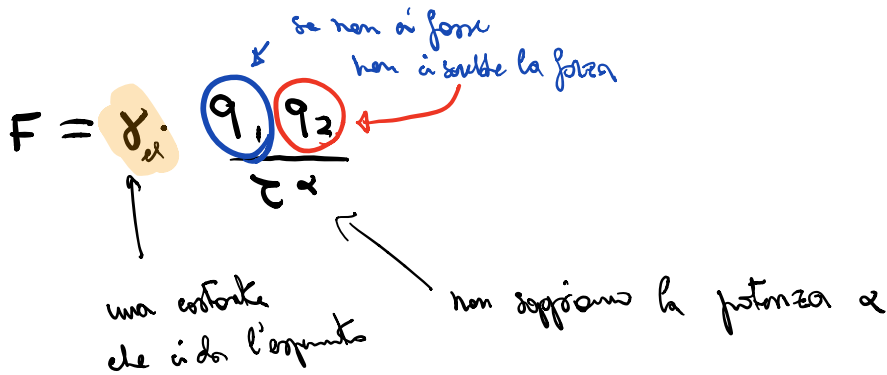 se non ci fosse
non ci sarebbe la forza
F = γel · q1 q2
r α
una costante
che ci da l'esperimento
non sappiamo la potenza α